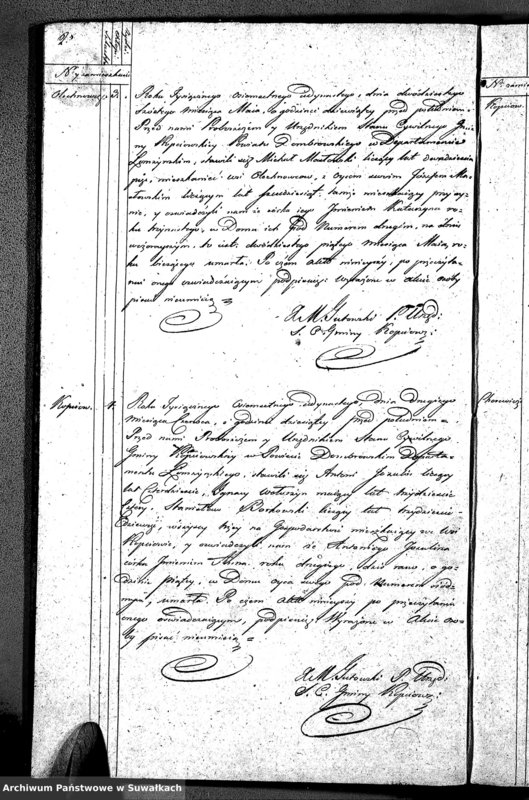 Nr zamieszkania
Olechnowicz. 3.
Roku Tysiącznego osiemsetnego iedynastego, dnia dwódziestego
szóstego Miesiąca Maia, o godzinie dziewiątey przed południem.
Przed nami Proboszczem y Urzędnikiem Stanu Cywilnego Gmi=
ny Kopciowskiey Powiatu Dombrowskiego w Departamencie
Łomżyńskim, stawili się Michał liczący lat dwadzieścia
pięć, mieszkaniec wsi Olechnowcow, z Oycem swoim Józefem
liczącym lat sześćdziesiąt, tamże mieszkaiący przy sy=
nie, y oświadczyli nam iż córka iego Imieniem Katarzyna ro=
ku w Domu ich pod Numerem drugim, na dniu
wczorayszym, to iest: dwódziestego piątego miesiąca Maia, ro=
ku bieżącego umarła. Po czem Akt ninieyszy, po przeczyta=
niu onego oświadczaiącym podpisaliśmy: wyrażone w akcie osoby
pisać nieumieią =
X M. Gutowski P. Urzęd:
S. C. Gminy Kopciows:
Kopciow. 4.
Roku Tysiącznego Osiemsetnego iedynastego, dnia drugiego
miesiąca Czerwca, o godzinie dziesiątey przed południem =
Przed nami Proboszczem y Urzędnikiem Stanu Cywilnego
Gminy Kopciowskiey w Powiecie Dombrowskim Departa=
mentu Łomżyńskiego, stawili się Antoni liczący
lat Czterdzieście, Ignacy maiący lat trzydzieście
Cztery. Stanisław Borkowski liczący lat trzydzieście
Dziewięć; wszyscy trzey na Gospodarstwie mieszkaiący we Wsi
Kopciowie, y oświadczyli nam iże Antoniego
córka Imieniem Anna. roku drugiego, dziś rano, o go=
dzinie piątey, w Domu oyca swego pod Numerem siód=
mym, umarła. Po czem Akt ninieyszy po przeczytaniu
onego oświadczaiącym, podpisaliśmy; Wyrażone w Akcie oso=
by pisać nieumieią =
X M. Gutowski P. Urzęd:
S. C. Gminy Kopciows:
Archiwum Państwowe w Suwałkach